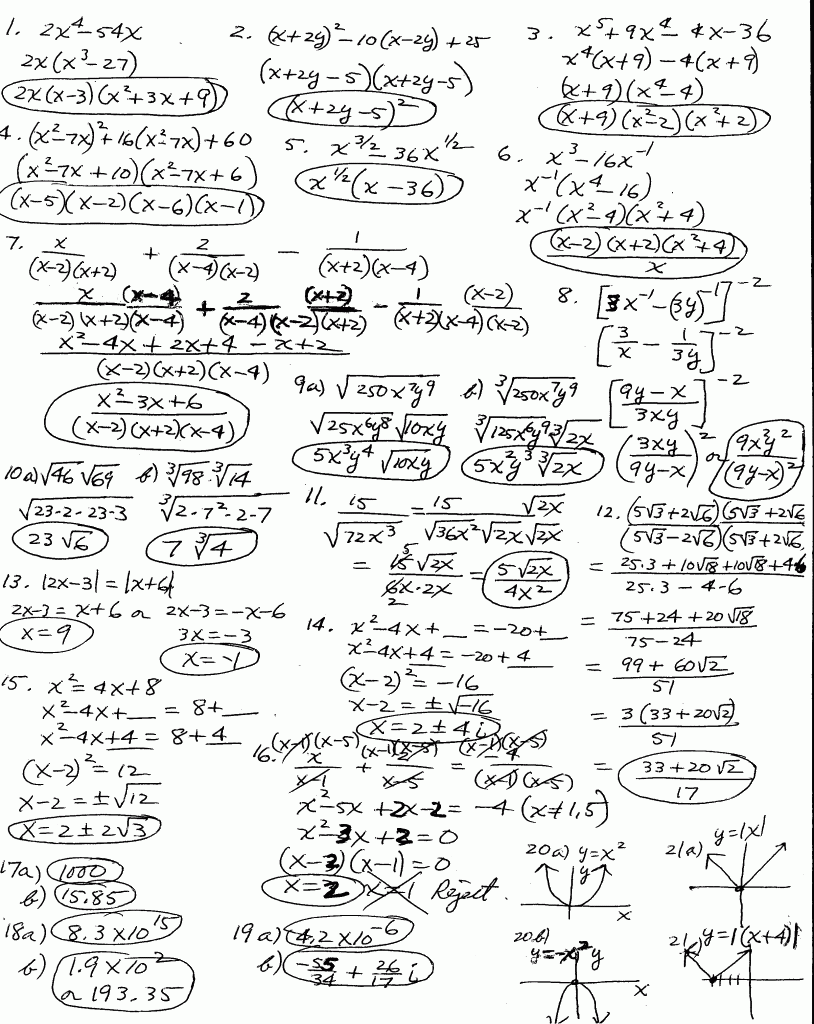 1. 2x⁴ - 54x
2x(x³ - 27)
2x(x-3)(x²+3x+9)
2. (x+2y)² - 10(x-2y) + 25
(x+2y-5)(x+2y-5)
(x+2y-5)²
3. x⁵ + 9x⁴ - 4x - 36
x⁴(x+9) - 4(x+9)
(x+9)(x⁴-4)
(x+9)(x²-2)(x²+2)
4. (x²-7x)² + 16(x²-7x) + 60
(x²-7x+10)(x²-7x+6)
(x-5)(x-2)(x-6)(x-1)
5. x^3/2 - 36x^1/2
x^1/2(x-36)
6. x³ - 16x⁻¹
x⁻¹(x⁴-16)
x⁻¹(x²-4)(x²+4)
(x-2)(x+2)(x²+4)/x
7. x/(x-2)(x+2) + 2/(x-4)(x-2) - 1/(x+2)(x-4)
x(x-4)/(x-2)(x+2)(x-4) + 2(x+2)/(x-4)(x-2)(x+2) - 1(x-2)/(x+2)(x-4)(x-2)
x²-4x+2x+4-x+2/(x-2)(x+2)(x-4)
x²-3x+6/(x-2)(x+2)(x-4)
8. [3x⁻¹-(3y)⁻¹]⁻²
[3/x - 1/3y]⁻²
[9y-x/3xy]⁻²
(3xy/9y-x)² or 9x²y²/(9y-x)²
9a) √250x⁷y⁹
√25x⁶y⁸ √10xy
5x³y⁴ √10xy
b) ³√250x⁷y⁹
³√125x⁶y⁹ ³√2x
5x²y³ ³√2x
10a) √46 √69
√23·2·23·3
23√6
b) ³√98 · ³√14
³√2·7²·2·7
7 ³√4
11. 15/√72x³ = 15 √2x/√36x² √2x √2x
= 15 5 √2x/6x·2x 2 = 5√2x/4x²
12. (5√3+2√6)(5√3+2√6)/(5√3-2√6)(5√3+2√6)
= 25·3+10√18+10√18+4·6/25·3-4·6
= 75+24+20√18/75-24
= 99+60√2/51
= 3(33+20√2)/51
= 33+20√2/17
13. |2x-3| = |x+6|
2x-3 = x+6 or 2x-3 = -x-6
x = 9 3x = -3
x = -1
14. x²-4x+__ = -20+__
x²-4x+4 = -20+4
(x-2)² = -16
x-2 = ±√-16
x = 2±4i
15. x² = 4x+8
x²-4x+__ = 8+__
x²-4x+4 = 8+4
(x-2)² = 12
x-2 = ±√12
x = 2±2√3
16. (x-1)(x-5) x/x-1 + (x-1)(x-5) 2/x-5 = (x-1)(x-5) -4/(x-1)(x-5)
x²-5x+2x-2 = -4 (x≠1,5)
x²-3x+2 = 0
(x-2)(x-1) = 0
x=2 x=1 Reject.
17a) 1000
b) 15.85
18a) 8.3×10¹⁵
b) 1.9×10²
or 193.35
19a) -4.2×10⁻⁶
b) -55/34 + 26/17 i
20a) y=x²
y
x
20b)
y=-x² y
x
21a) y=|x|
y=|(x+4)|